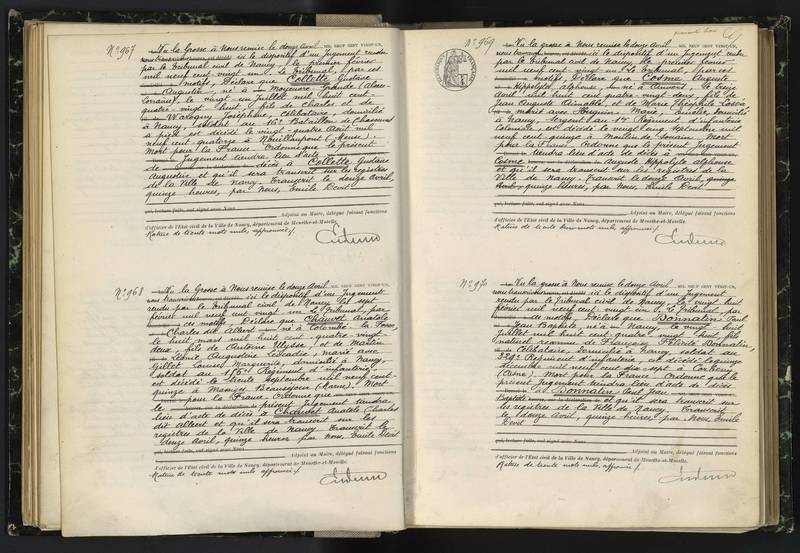 N° 967
Vu la Grosse à Nous remise le douze Avril MIL NEUF CENT VINGT-UN,
ici le dispositif d'un Jugement rendu
par le Tribunal civil de Nancy, le premier février
mil neuf cent vingt un. Le Tribunal, par ces
motifs, Déclare que Collette Gustave
Augustin, né à Moyeuvre Grande (Alsace
Lorraine), le vingt un juillet mil huit cent
quatre vingt huit, fils de Charles et de
Joséphine, célibataire, domicilié
à Nancy, soldat au 16e Bataillon de Chasseurs
à pied est décédé le vingt-quatre Août mil
neuf cent quatorze à Nouillonpont (Meuse).
Mort pour la France. Ordonne que le présent
Jugement tiendra lieu d'acte
de décès à Collette Gustave
Augustin et qu'il sera transcrit sur les registres
de la Ville de Nancy. Transcrit le douze Avril,
quinze heures, par Nous, Emile Devit
qui, lecture faite, ont signé avec Nous
Adjoint au Maire, délégué faisant fonctions
d'officier de l'Etat civil de la Ville de Nancy, département de Meurthe-et-Moselle.
Rature de trente mots nuls, approuvée /.
N° 968
Vu la Grosse à Nous remise le douze Avril MIL NEUF CENT VINGT-UN,
ici le dispositif d'un Jugement
rendu par le Tribunal civil de Nancy le sept
février mil neuf cent vingt un. Le Tribunal, par
ces motifs Déclare que Chauvot Anatole
Charles dit Albert né à Colombé la Fosse,
le huit mars mil huit cent quatre-vingt
deux, fils de Antoine Ulysse, et de Martin
Augustine Léocadie, marié avec
Gillot Louise Marguerite, domicilié à Nancy,
soldat au Régiment d'infanterie
est décédé le trente septembre mil neuf cent
quinze à Beauséjour (Marne). Mort
pour la France. Ordonne que
le présent Jugement tiendra
lieu d'acte de décès à Chauvot Anatole Charles
dit Albert et qu'il sera transcrit sur les
registres de la Ville de Nancy. Transcrit le
douze Avril, quinze heures par Nous, Emile Devit
qui, lecture faite, ont signé avec Nous
Adjoint au Maire, délégué faisant fonctions
d'officier de l'Etat civil de la Ville de Nancy, département de Meurthe-et-Moselle.
Rature de trente mots nuls, approuvée /.
N° 969
Vu la grosse à Nous remise le douze Avril MIL NEUF CENT VINGT-UN,
ici le dispositif d'un Jugement rendu
par le Tribunal civil de Nancy, le premier février
mil neuf cent vingt un. Le Tribunal, par ces
motifs, Déclare que Cosme Auguste
Hippolyte Alphonse, né à le treize
Août mil huit cent quatre-vingt deux, fils de
Jean Auguste Aimable, et de Marie Théophile
marié avec Marie, Amélie, domicilié
à Nancy, sergent au Régiment d'infanterie
Coloniale, est décédé le vingt cinq septembre mil
neuf cent quinze à Mort
pour la France. Ordonne que le présent Jugement
tiendra lieu d'acte de décès à
Cosme Auguste Hippolyte Alphonse
et qu'il sera transcrit sur les registres de la
Ville de Nancy. Transcrit le douze Avril,
quinze heures, par Nous, Emile Devit
qui, lecture faite, ont signé avec Nous
Adjoint au Maire, délégué faisant fonctions
d'officier de l'Etat civil de la Ville de Nancy, département de Meurthe-et-Moselle.
Rature de trente mots nuls, approuvée /.
N° 970
Vu la grosse à Nous remise le douze Avril MIL NEUF CENT VINGT-UN,
ici le dispositif d'un Jugement
rendu par le Tribunal civil de Nancy, le vingt huit
février mil neuf cent vingt un. Le Tribunal, par
ces motifs, Déclare que Donnatin, Paul
Jean Baptiste, né à Nancy, le vingt huit
juillet mil huit cent quatre vingt huit fils
naturel reconnu de Françoise Félicité Donnatin,
célibataire, domicilié à Nancy, soldat au
329e Régiment d'infanterie, est décédé le quinze
décembre mil neuf cent dix sept à Corbeny
(Aisne). Mort pour la France. Ordonne que le
présent Jugement tiendra lieu d'acte de décès
à dit Donnatin, Paul Jean
Baptiste et qu'il sera transcrit sur
les registres de la Ville de Nancy. Transcrit
le douze Avril, quinze heures, par Nous, Emile
Devit
qui, lecture faite, ont signé avec Nous
Adjoint au Maire, délégué faisant fonctions
d'officier de l'Etat civil de la Ville de Nancy, département de Meurthe-et-Moselle.
Rature de trente mots nuls, approuvée /.